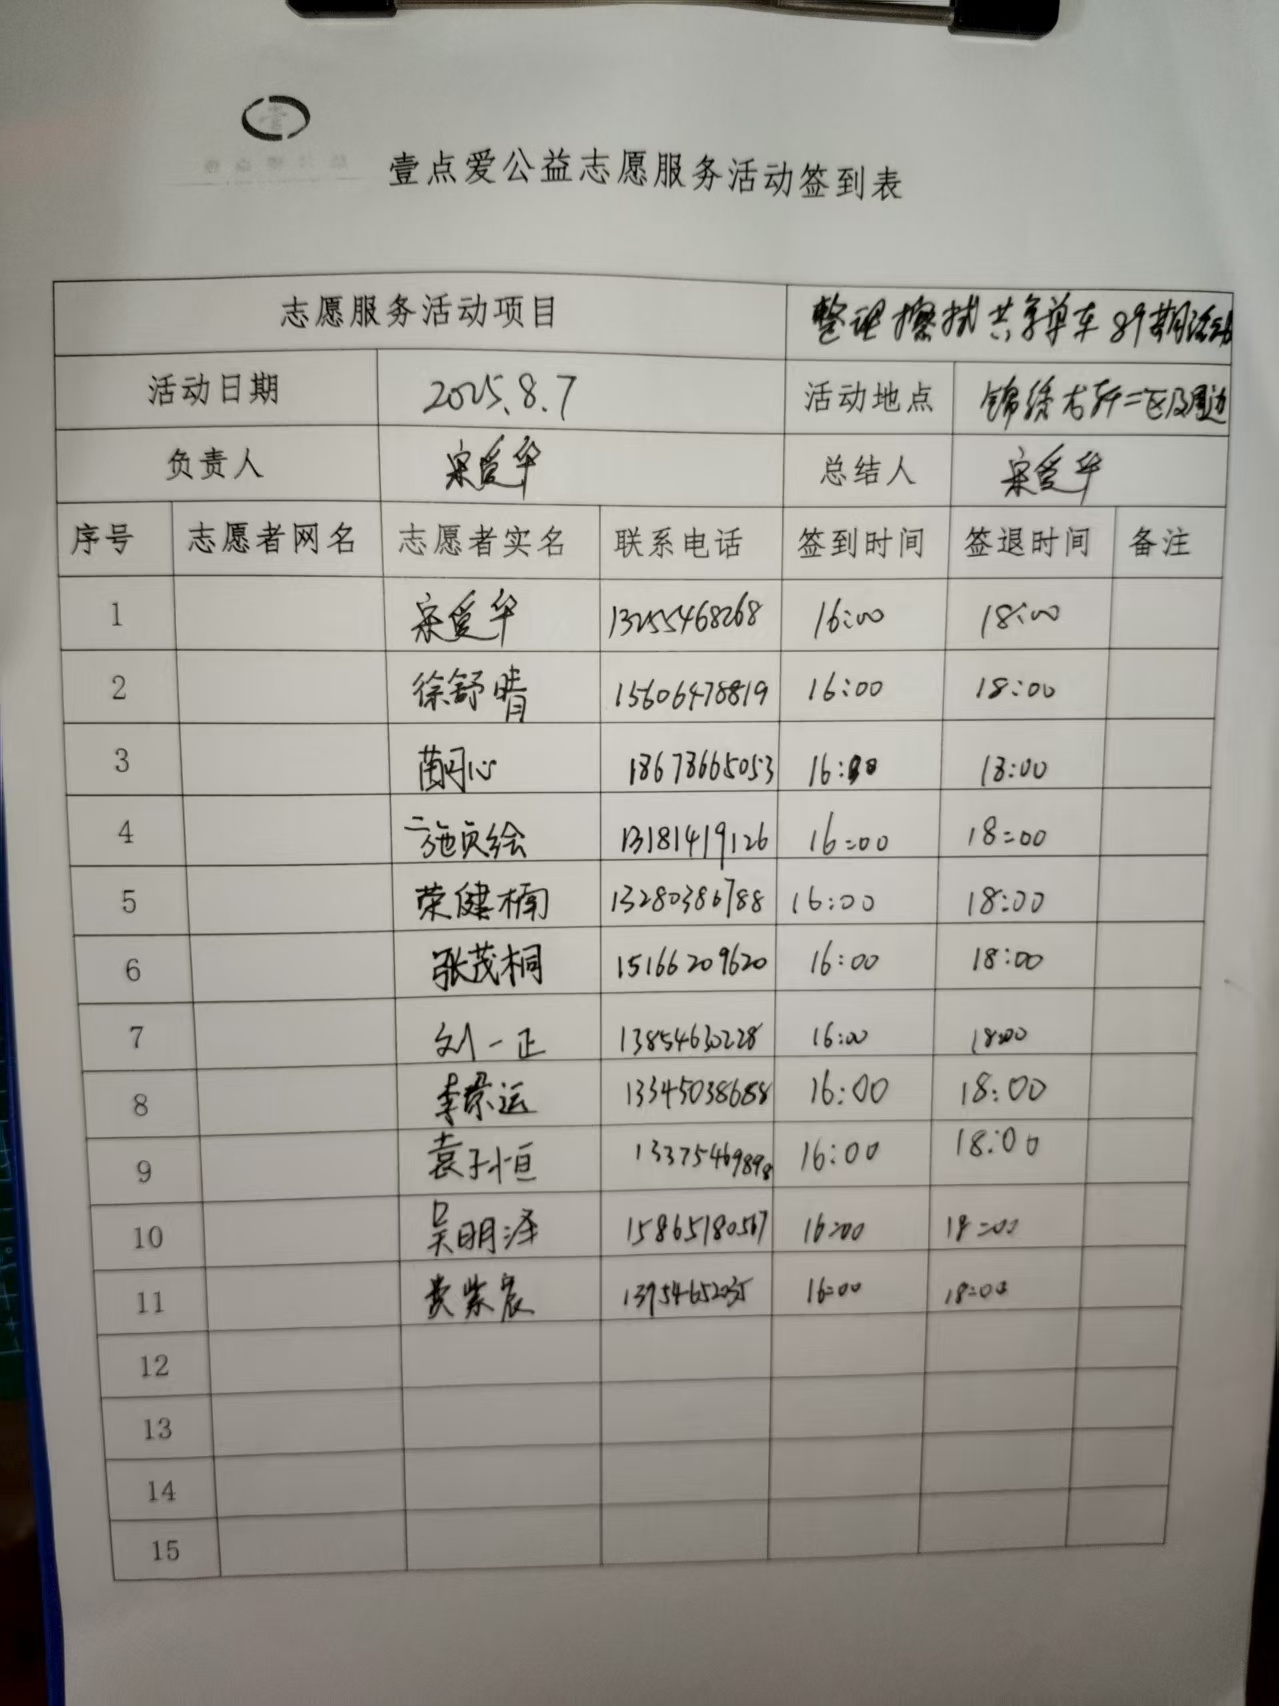 壹点爱公益志愿服务活动签到表
志愿服务活动项目 整理擦拭共享单车89期活动
活动日期 2025.8.7 活动地点 锦绣 二区及周边
负责人 宋爱华 总结人 宋爱华
序号 志愿者网名 志愿者实名 联系电话 签到时间 签退时间 备注
1 宋爱华 13255468268 16:00 18:00
2 徐舒晴 15606478819 16:00 18:00
3 18678665053 16:00 18:00
4 13181419126 16:00 18:00
5 荣健楠 13280386788 16:00 18:00
6 张茂桐 15166209620 16:00 18:00
7 刘一正 13854630228 16:00 18:00
8 李景运 13345038688 16:00 18:00
9 袁子恒 13375469898 16:00 18:00
10 吴明泽 15865180567 16:00 18:00
11 黄紫宸 13954652035 16:00 18:00
12
13
14
15